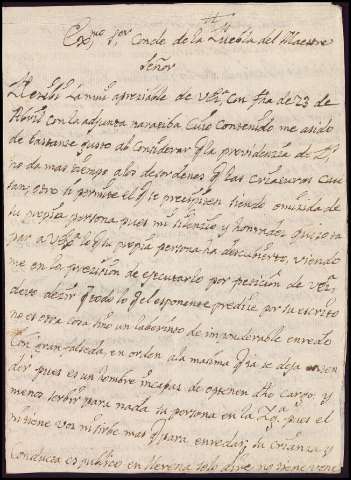 Exmo Sor Conde de la Puebla del Maestre
Señor
Recibi la mui apreciable de VExa con fha de 23 de
Abril con la adjunta narratiba cuio contenido me a sido
de bastante gusto de considerar q la providenzia de Ds
no da mas tiempo a los desordenes q las criaturas
tan, otro si permite el q te precipiten siendo omizida de
su propia persona pues mi silenzio y honrradez quiso ta
par a VExa lo q tu propia persona ha descubierto, viendo
me en la precision de ejecutarlo por peticion de VExa
devo dezir q todo lo q el esponente predize por su escrito
no es otra cosa sino un laberinto de imponderable enredo
con gran falzeda, en orden a la maxima q ia se deja
der pues es un hombre incapas de obtener dho cargo, y
menos serbir para nada su persona en la Va pues el
ni tiene vos ni sirbe mas q para enredar; su crianza y
conducta es publico en Llerena solo dire no tiene